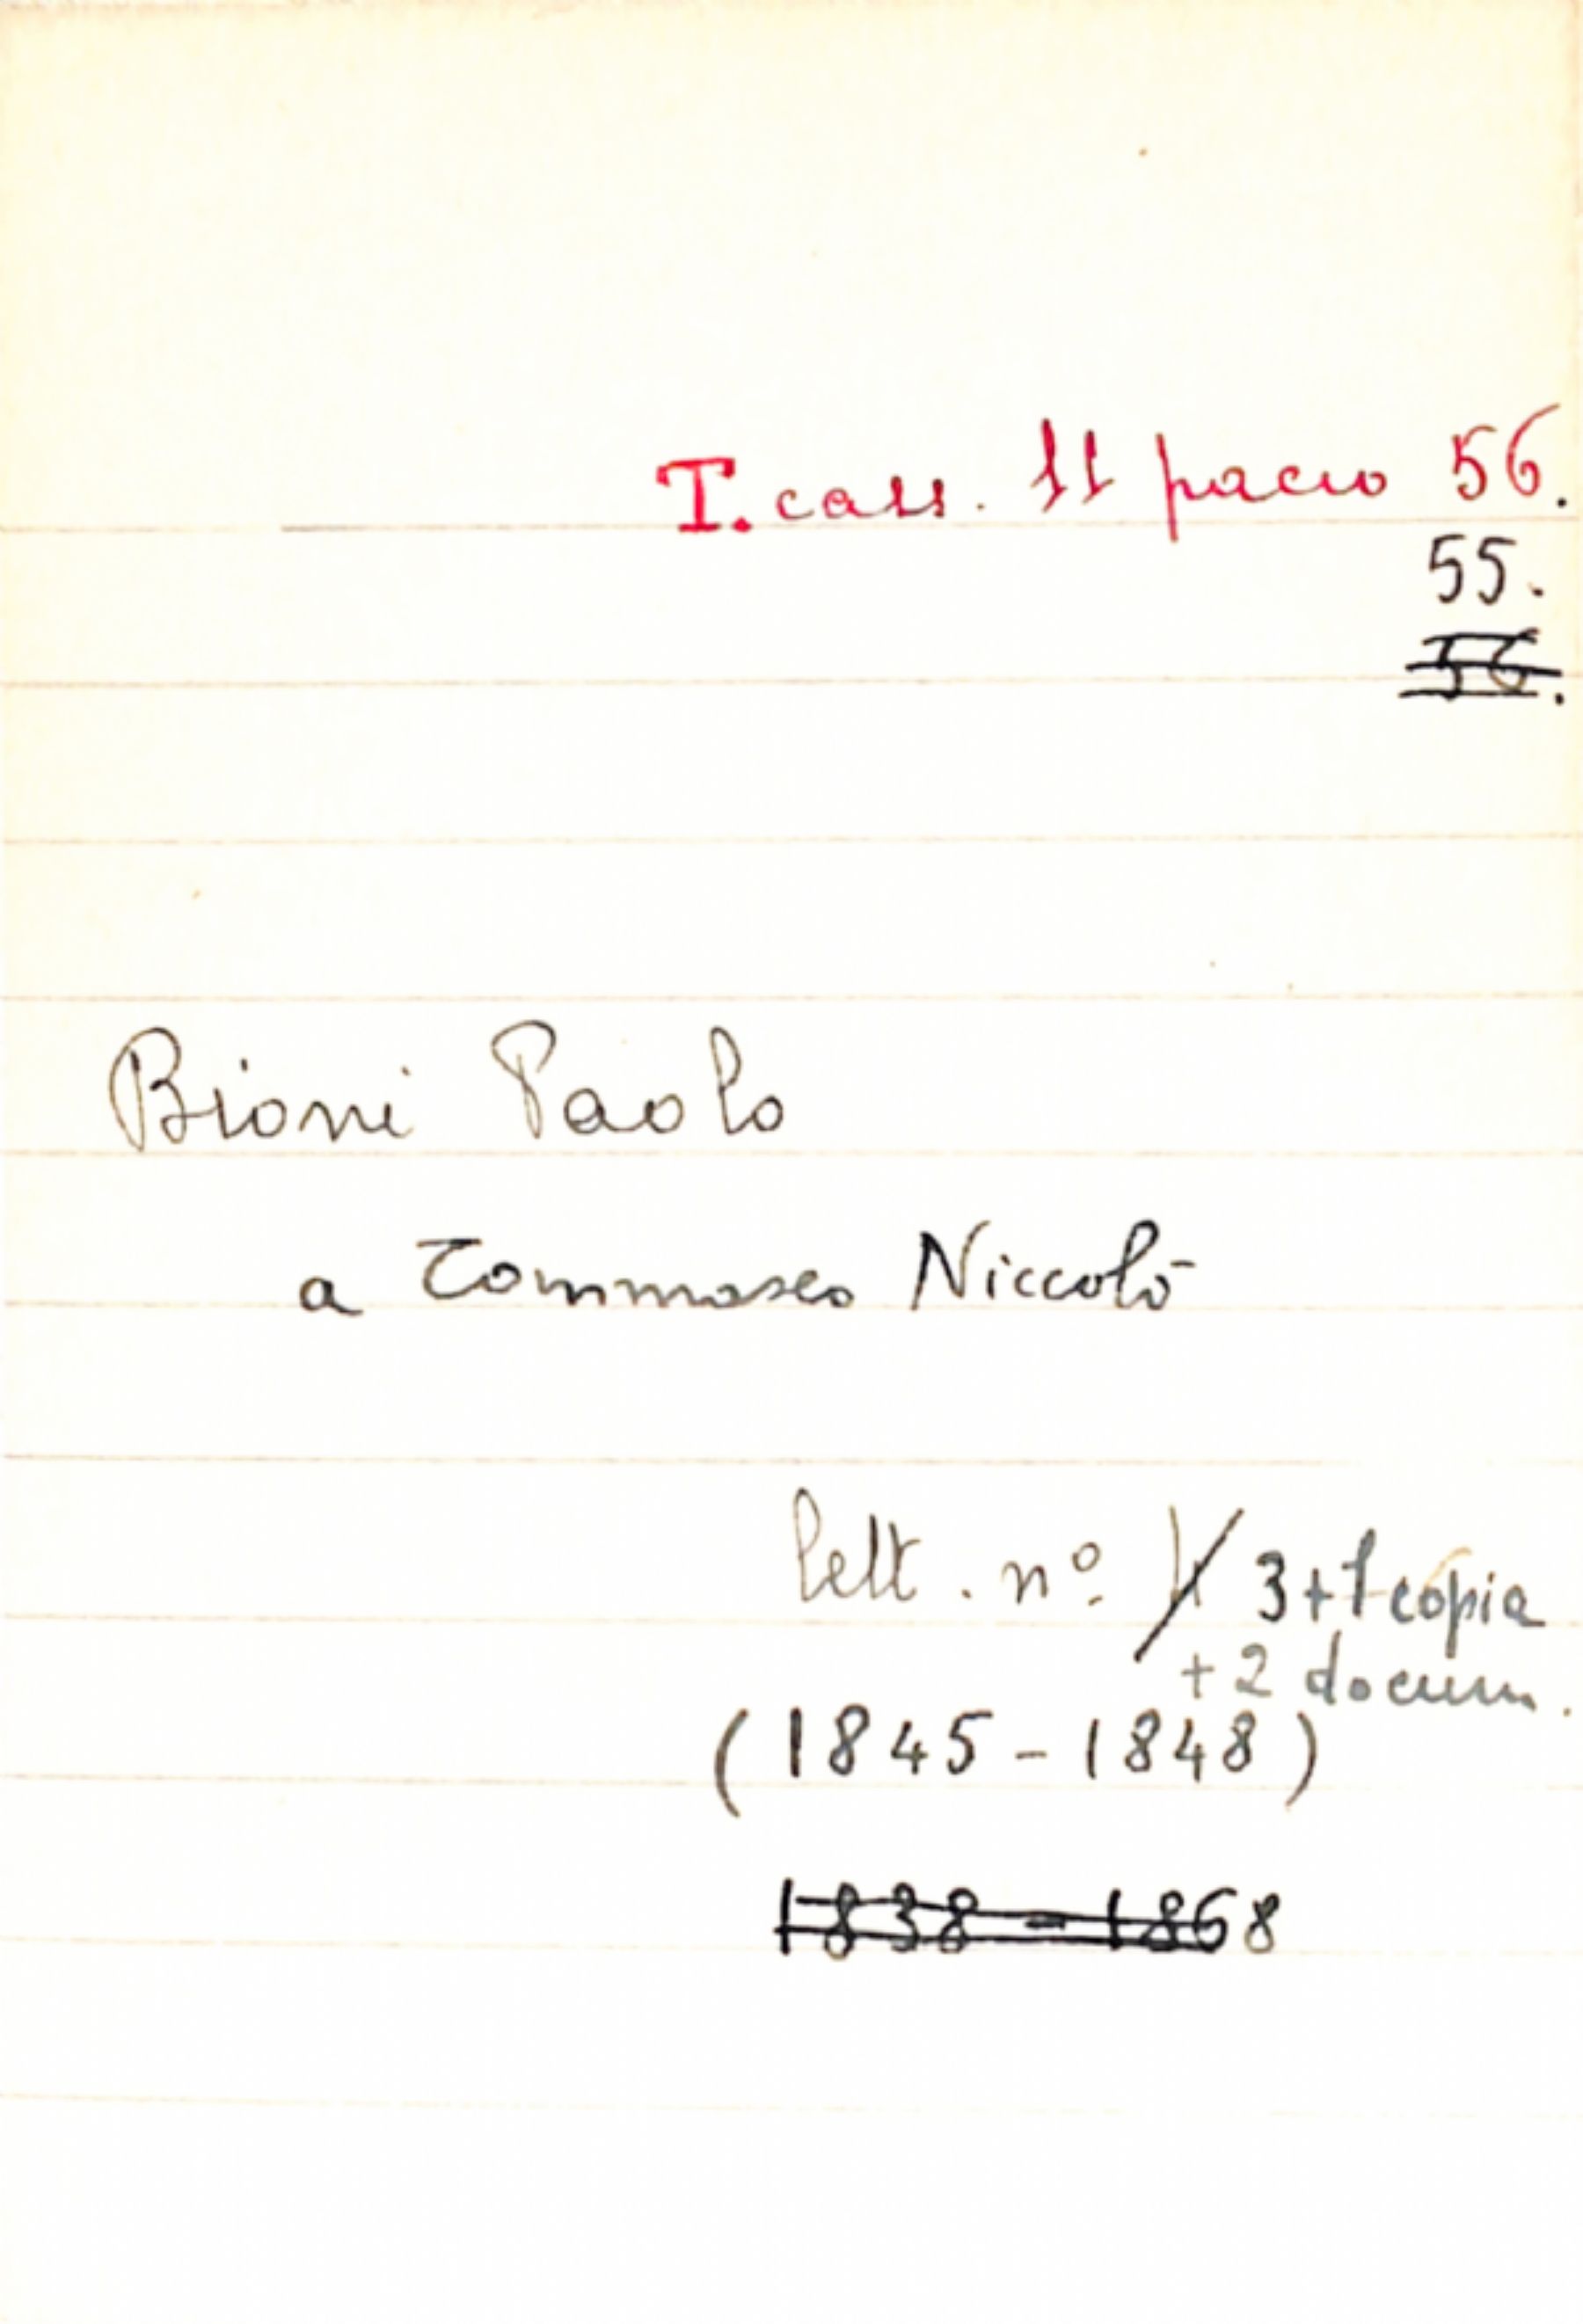 T. cass. 11 pacco 56.
55.
56.
Bioni Paolo
a Tommaseo Niccolò
lett. nº. 4 3+1 copia
+ 2 docum.
(1845-1848)
1838-1868